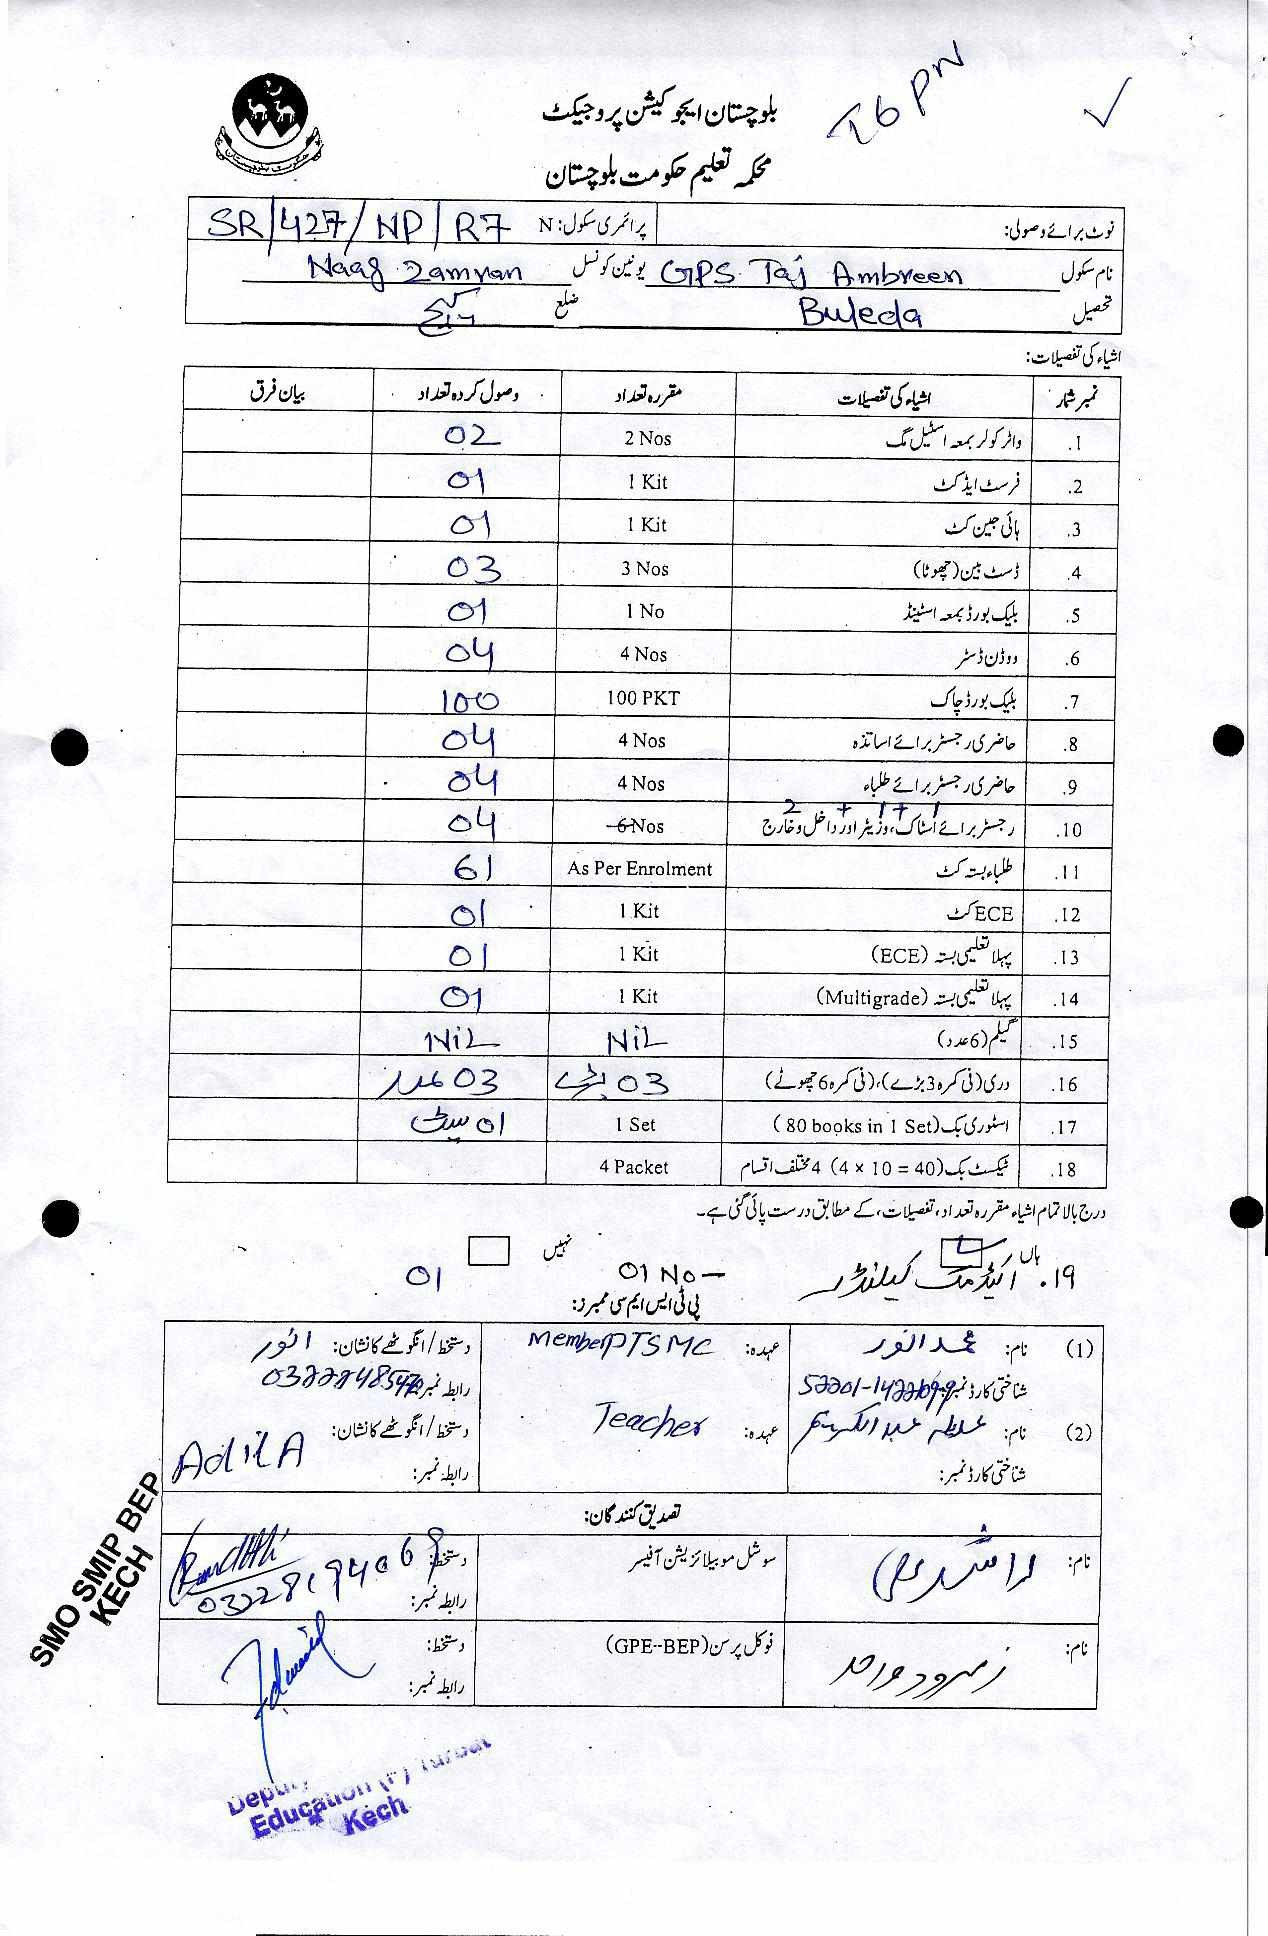 T6PN
بلوچستان ایجوکیشن پروجیکٹ
محکمہ تعلیم حکومت بلوچستان
حکومت بلوچستان
نوٹ برائے وصولی: پرائمری سکول: SR/427/NP/R7 N
نام سکول GPS Taj Ambreen یونین کونسل Naag Zamran
تحصیل Buleda ضلع کیچ
اشیاء کی تفصیلات:
نمبر شمار اشیاء کی تفصیلات مقررہ تعداد وصول کردہ تعداد بیان فرق
.1 واٹر کولر بمعہ اسٹیل مگ 2 Nos 02
.2 فرسٹ ایڈ کٹ 1 Kit 01
.3 ہائی جین کٹ 1 Kit 01
.4 ڈسٹ بین (چھوٹا) 3 Nos 03
.5 بلیک بورڈ بمعہ اسٹینڈ 1 No 01
.6 ووڈن ڈسٹر 4 Nos 04
.7 بلیک بورڈ چاک 100 PKT 100
.8 حاضری رجسٹر برائے اساتذہ 4 Nos 04
.9 حاضری رجسٹر برائے طلباء 4 Nos 04
2 + 1 + 1
.10 رجسٹر برائے اسٹاک، وزیٹر اور داخل و خارج 6 Nos 04
.11 طلباء بستہ کٹ As Per Enrolment 61
.12 ECE کٹ 1 Kit 01
.13 پہلا تعلیمی بستہ (ECE) 1 Kit 01
.14 پہلا تعلیمی بستہ (Multigrade) 1 Kit 01
.15 گیم (6 عدد) NiL NiL
.16 دری (فی کمرہ 3 بڑے)، (فی کمرہ 6 چھوٹے) 03 بڑے 03 عدد
.17 اسٹوری بک (80 books in 1 Set) 1 Set 01 سیٹ
.18 ٹیکسٹ بک (4 × 10 = 40) 4 مختلف اقسام 4 Packet
درج بالا تمام اشیاء مقررہ تعداد، تفصیلات، کے مطابق درست پائی گئی ہے۔
ہاں نہیں
۱۹. اکیڈمک کیلنڈر 01 No - 01
پی ٹی ایس ایم سی ممبرز:
(1) نام: محمد انور عہدہ: Member PTSMC دستخط/انگوٹھے کا نشان: انور
شناختی کارڈ نمبر: رابطہ نمبر:
(2) نام: عبدالکریم عہدہ: Teacher دستخط/انگوٹھے کا نشان: Adil A
شناختی کارڈ نمبر: رابطہ نمبر:
تصدیق کنندگان:
نام: راشد علی سوشل موبیلائزیشن آفیسر دستخط:
رابطہ نمبر: 03228194069
نام: زمرود واحد فوکل پرسن (GPE--BEP) دستخط:
رابطہ نمبر:
SMO SMIP BEP
KECH
Deputy
Education (F) Turbat
Kech